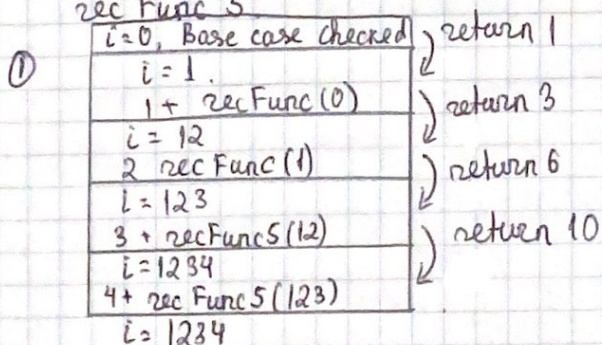 rec Func 5
i=0, Base case checked
return 1
①
i = 1.
1 + recFunc(0)
return 3
i = 12
2 recFunc(1)
return 6
i = 123
3 + recFunc5(12)
return 10
i=1234
4+ recFunc5(123)
i= 1234